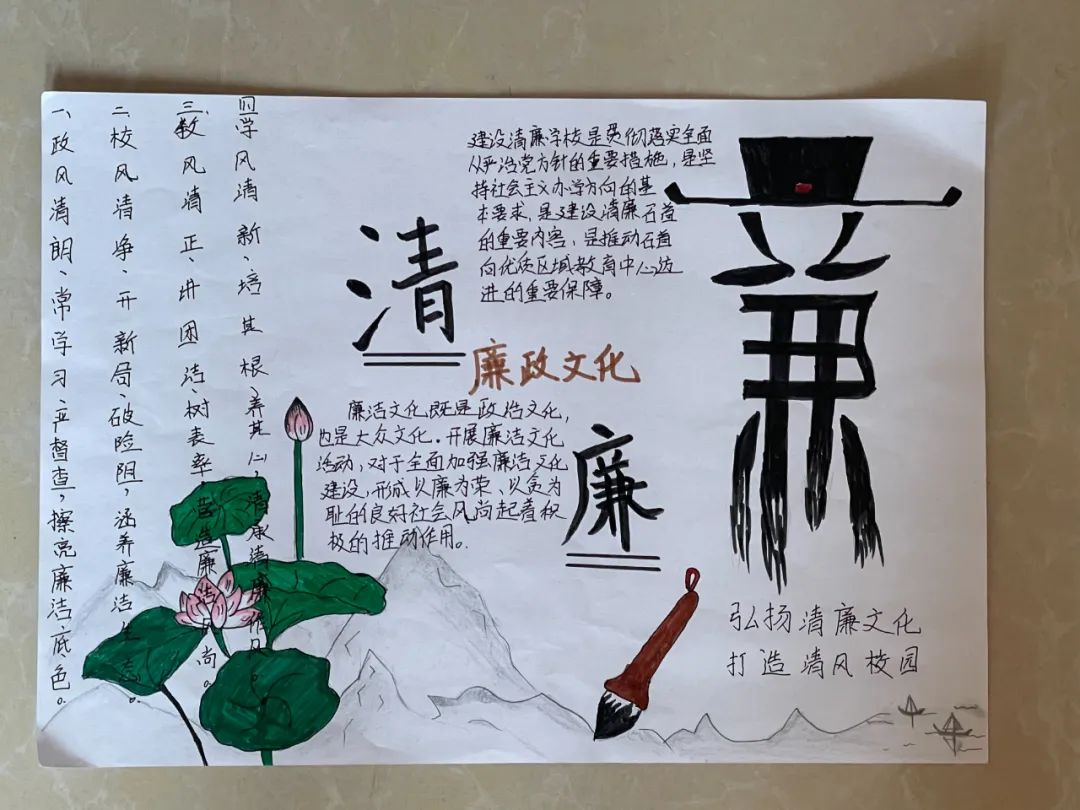 一、政风清朗、常学习、严督查，擦亮廉洁底色。
二、校风清净、开新局、破险阻，涵养廉洁生态。
三、教风清正、讲团洁、树表率，营造廉洁风尚。
四、学风清新、培其根、养其心，承清廉作风。
清
建设清廉学校是贯彻落实全面
从严治党方针的重要措施，是坚
持社会主义办学方向的基
本要求，是建设清廉石首
的重要内容，是推动石首
向优质区域教育中心迈
进的重要保障。
廉政文化
廉洁文化既是政治文化，
也是大众文化。开展廉洁文化
活动，对于全面加强廉洁文化
建设，形成以廉为荣、以贪为
耻的良好社会风尚起着积
极的推动作用。
廉
弘扬清廉文化
打造清风校园